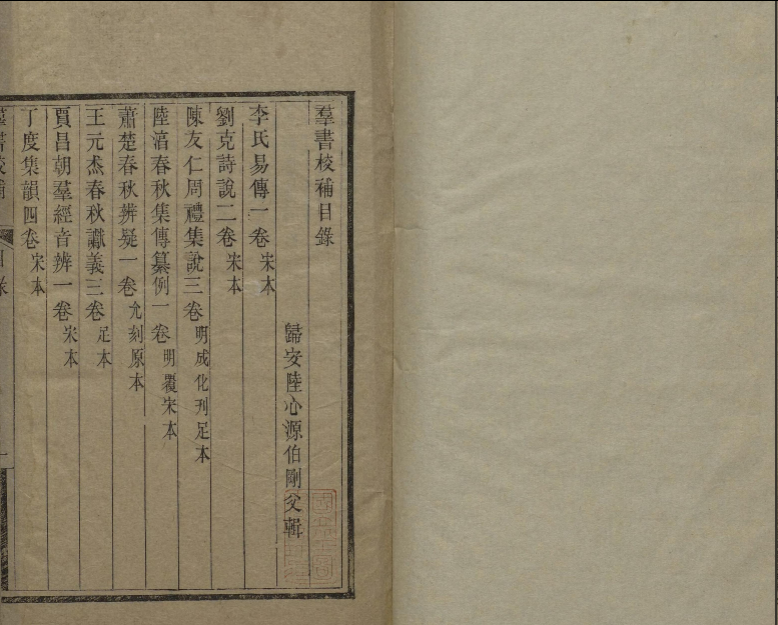 羣書校補目錄
歸安陸心源伯剛父輯
李氏易傳一卷宋本
劉克詩說二卷宋本
陳友仁周禮集說三卷明成化刋足本
陸淳春秋集傳纂例一卷明覆宋本
蕭楚春秋辨疑一卷允刻原本
王元杰春秋讞義三卷足本
賈昌朝羣經音辨一卷宋本
丁度集韻四卷宋本
羣書校補
目錄
一